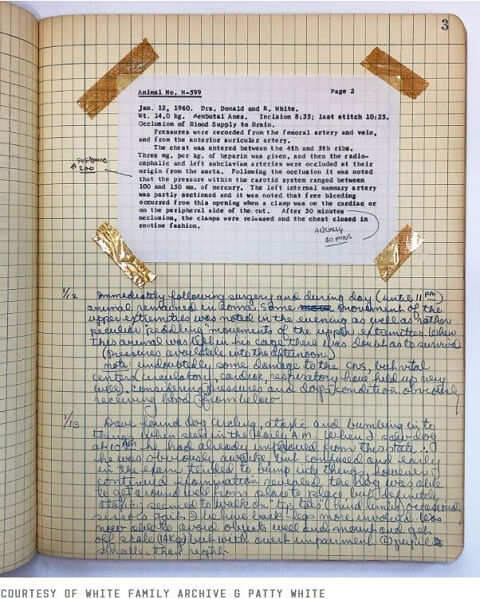 3
Animal No. H-599 Page 2
Jan. 12, 1960. Drs. Donald and R. White.
Wt. 14.0 kg. Nembutal Anes. Incision 8:35; last stitch 10:25.
Occlusion of Blood Supply to Brain.
Pressures were recorded from the femoral artery and vein,
and from the anterior auricular artery.
The chest was entered between the 4th and 5th ribs.
Three mg. per kg. of heparin was given, and then the radio-
cephalic and left subclavian arteries were occluded at their
origin from the aorta. Following the occlusion it was noted
that the pressure within the carotid system ranged between
100 and 150 mm. of mercury. The left internal mammary artery
was partly sectioned and it was noted that free bleeding
occurred from this opening when a clamp was on the cardiac or
on the peripheral side of the cut. After 30 minutes
occlusion, the clamps were released and the chest closed in
routine fashion.
200
Actually
30 mins
1/12 Immediately following surgery and during day (until 11 pm)
animal remained in coma. Some movement of the
upper extremities was noted in the evening as well as rather
peculiar "pedalling" movements of the upper extremities. When
this animal was left in his cage there was doubt as to survival
(Pressures available into the afternoon)
note: undoubtedly some damage to the CNS, but vital
centers, circulatory, cardiac, respiratory have held up very
well, considering pressures and dog's condition obviously
receiving blood from below
1/13 Dave found dog circling, ataxic and bumping into
things when seen in the early A.M. When I saw dog
at 10 she had already improved from this state.
She was obviously awake, but confused and early
in the exam tended to bump into things, however
continued examination revealed the dog was able
to get around well from place to place, but definitely
ataxic, seemed to walk on "tip toes" (hind limbs) occasional
scissors gait. I believe back legs more involved. Was
now able to avoid objects well and mount and get
off scale (14Kg) but with overt impairment. pupil
smaller than right.
COURTESY OF WHITE FAMILY ARCHIVE & PATTY WHITE